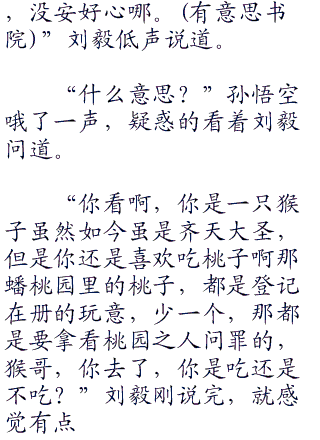 ，没安好心哪。(有意思书
院)”刘毅低声说道。
“什么意思？”孙悟空
哦了一声，疑惑的看着刘毅
问道。
“你看啊，你是一只猴
子虽然如今虽是齐天大圣，
但是你还是喜欢吃桃子啊那
蟠桃园里的桃子，都是登记
在册的玩意，少一个，那都
是要拿看桃园之人问罪的，
猴哥，你去了，你是吃还是
不吃？”刘毅刚说完，就感
觉有点